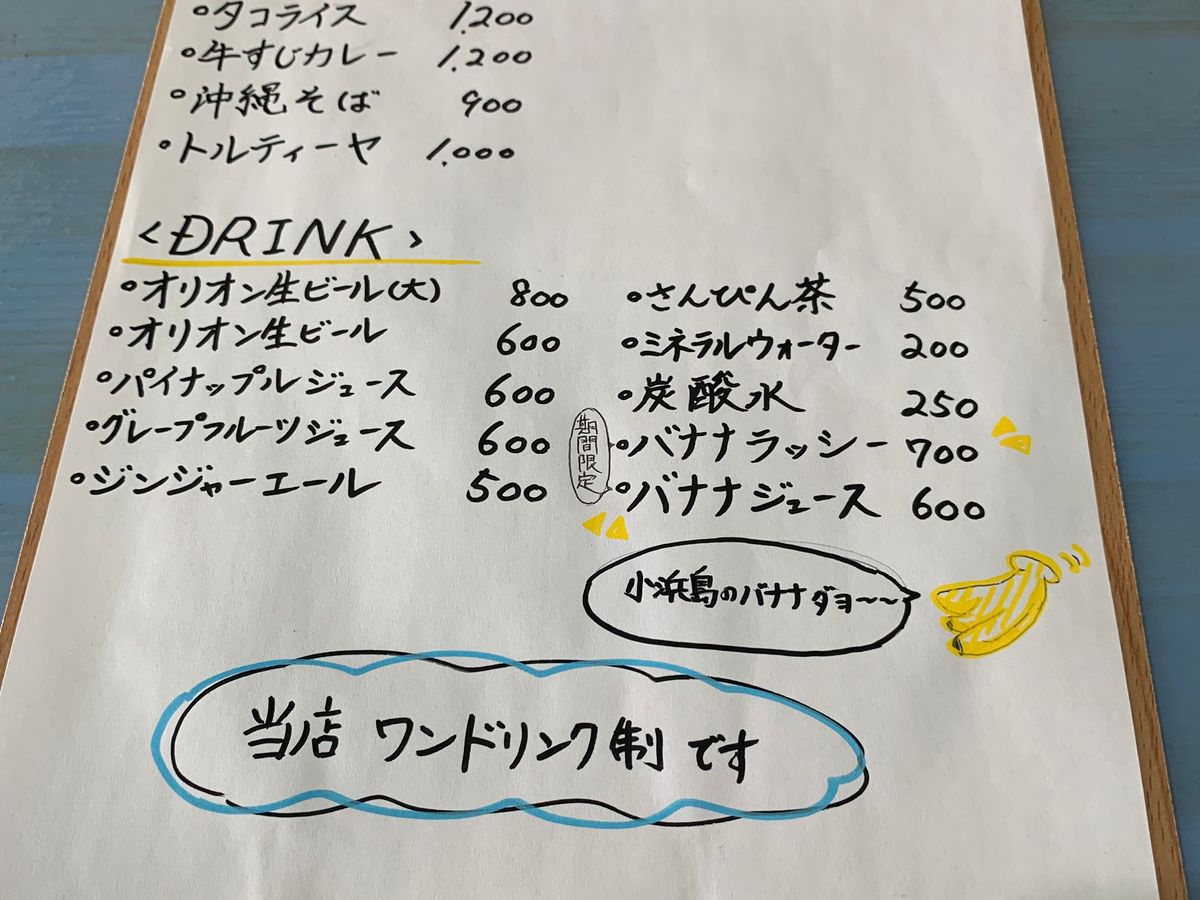 •タコライス 1,200
•牛すじカレー 1,200
•沖縄そば 900
•トルティーヤ 1,000
<DRINK>
•オリオン生ビール(大) 800
•オリオン生ビール 600
•パイナップルジュース 600
•グレープフルーツジュース 600
•ジンジャーエール 500
•さんぴん茶 500
•ミネラルウォーター 200
•炭酸水 250
期間限定
•バナナラッシー 700
•バナナジュース 600
小浜島のバナナダヨ〜〜
当店 ワンドリンク制です